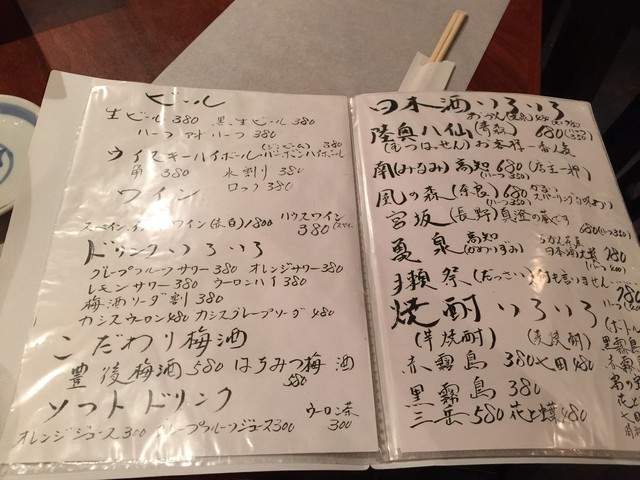 ビール
生ビール 380 黒生ビール 380
ハーフ アオ ハーフ 380
ウイスキーハイボール バーボンハイボール 380
角 380 水割り 380
ロック 380
ワイン
スペイン ワイン(赤白)1800 ハウスワイン 380
ドリンクいろいろ
グレープフルーツサワー 380 オレンジサワー 380
レモンサワー 380 ウーロンハイ 380
梅酒ソーダ割 380
カシスウーロン 480 カシスグレープソーダ 480
こだわり梅酒
豊後梅酒 580 はちみつ梅酒 580
ソフトドリンク
ウーロン茶 300
オレンジジュース 300 グレープフルーツジュース 300
日本酒いろいろ
陸奥八仙(青森) 680
(むつはっせん)お客様一番人気
南(みなみ)高知 680 店主一押
風の森(奈良) 680
宮坂(長野)真澄の蔵です
亀泉 高知 (かめいずみ) 980
獺祭(だっさい)何も言いません 980
焼酎いろいろ
(芋焼酎) (麦焼酎)
赤霧島 380 七田 480
黒霧島 380
三岳 580 花と蝶 480